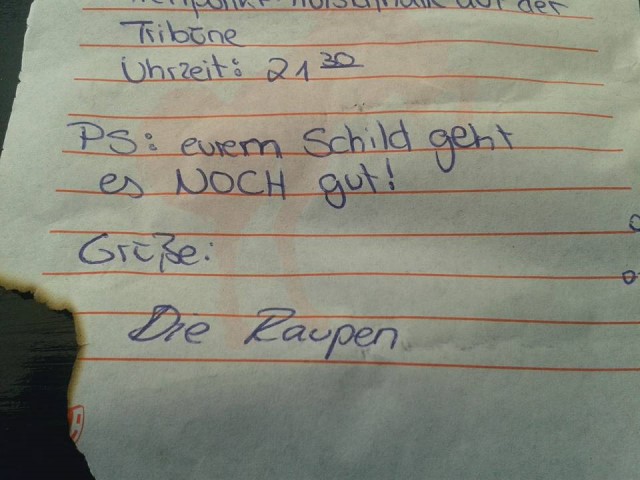 auf der
Tribüne
Uhrzeit: 21 30
PS: eurem Schild geht
es NOCH gut!
Grüße:
Die Raupen